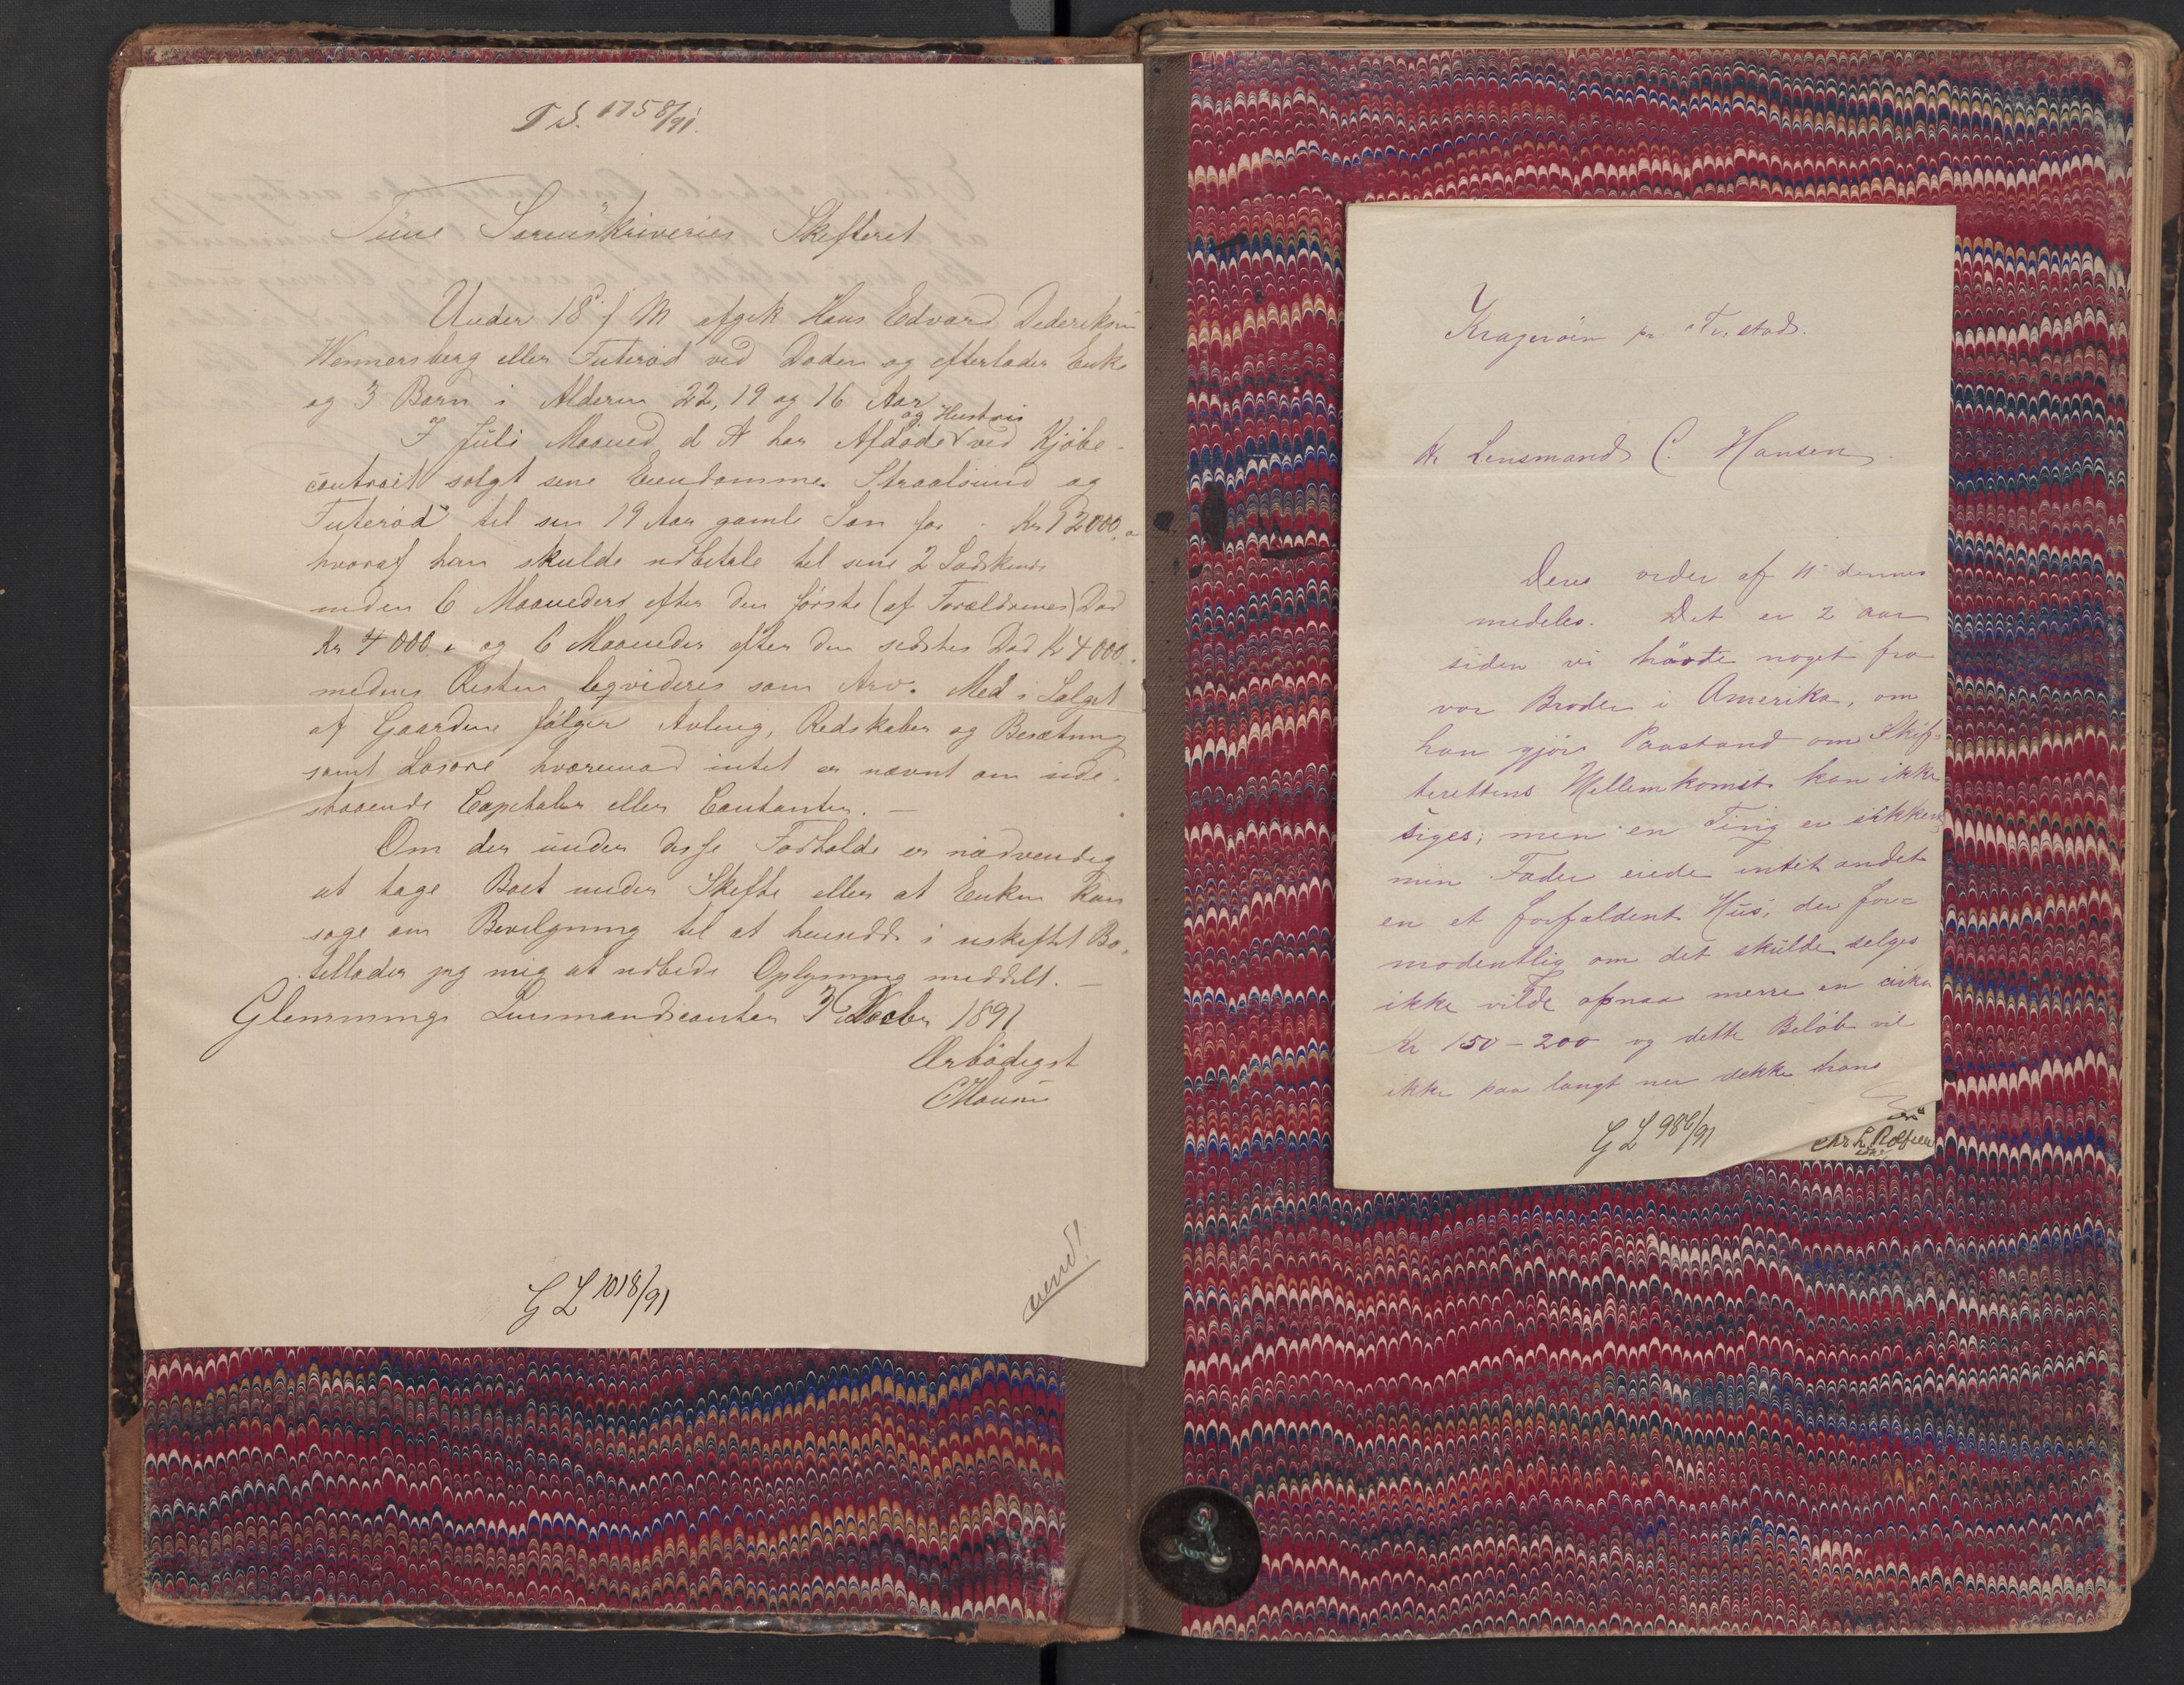 T. S. 1758/91.
Tune Sorenskriveries Skifteret
Under 18 f M afgik Hans Edvard Dederiksen
Wennersberg eller Tuterød ved Døden og efterlader Enke
og 3 Børn i Alderen 22, 19 og 16 Aar
og Hustrus
I Juli Maaned d A har Afdøde ved Kjöbe-
contract solgt sine Eiendomme Straalsund og
Tuterød til sin 19 Aar gamle Søn for - Kr 12000,
hvoraf han skulde udbetale til sine 2 Sødskende
inden 6 Maaneder efter den første (af Forældrenes) Død
Kr 4000 og 6 Maaneder efter den sidstes Død Kr 4000.
medens Resten leqvideres som Arv. Med i Salget
af Gaardene følger Avling, Redskaber og Besætning
samt Løsøre hvorimod intet er nævnt om inde-
staaende Capitaler eller Contanter. —
Om der under disse Forholde er nødvendig
at tage Boet under Skifte eller at Enken kan
søge om Bevilgning til at hensidde i uskiftet Bo,
tillader jeg mig at udbede Oplysning meddelt. —
Glemminge Lensmandscontor 3 Novbr 1891
Ærbødigst
CHansen
G L 1018/91
vend!
Kragerøen pr Fr.stad.
Hr Lensmand C. Hansen.
Deres order af 11 dennes
medeles. Det er 2 aar
siden vi hørte noget fra
vor Broder i Amerika, om
han gjør Paastand om Skif=
terettens Mellemkomst kan ikke
siges; men en Ting er sikkert
min Fader eiede intet andet
en et forfaldent Hus, der for=
modentlig om det skulde selges
ikke vilde opnaa merre en cirka
Kr 150 - 200 og dette Beløb vil
ikke paa langt ner dekke hans
G L 986/91
Chr L